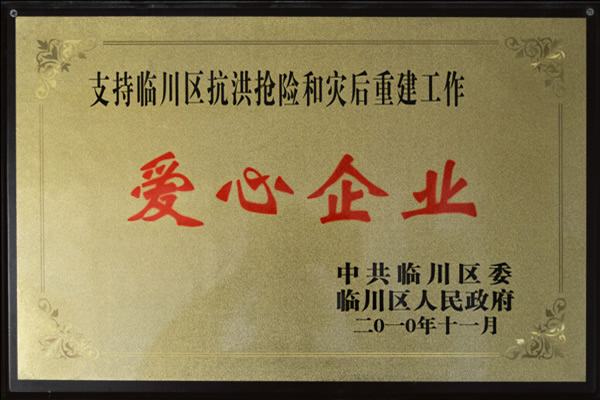 支持临川区抗洪抢险和灾后重建工作
爱心企业
中共临川区委
临川区人民政府
二0一0年十一月